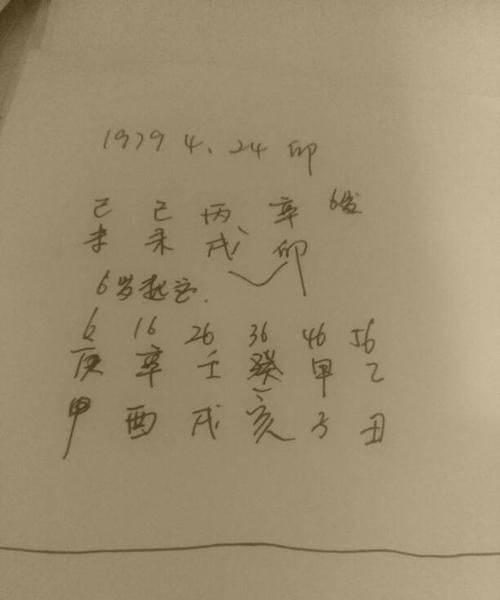 1979 4. 24 卯
己 己 丙 辛 6岁
未 未 戌 卯
6岁起运.
6 16 26 36 46 56
庚 辛 壬 癸 甲 乙
申 酉 戌 亥 子 丑